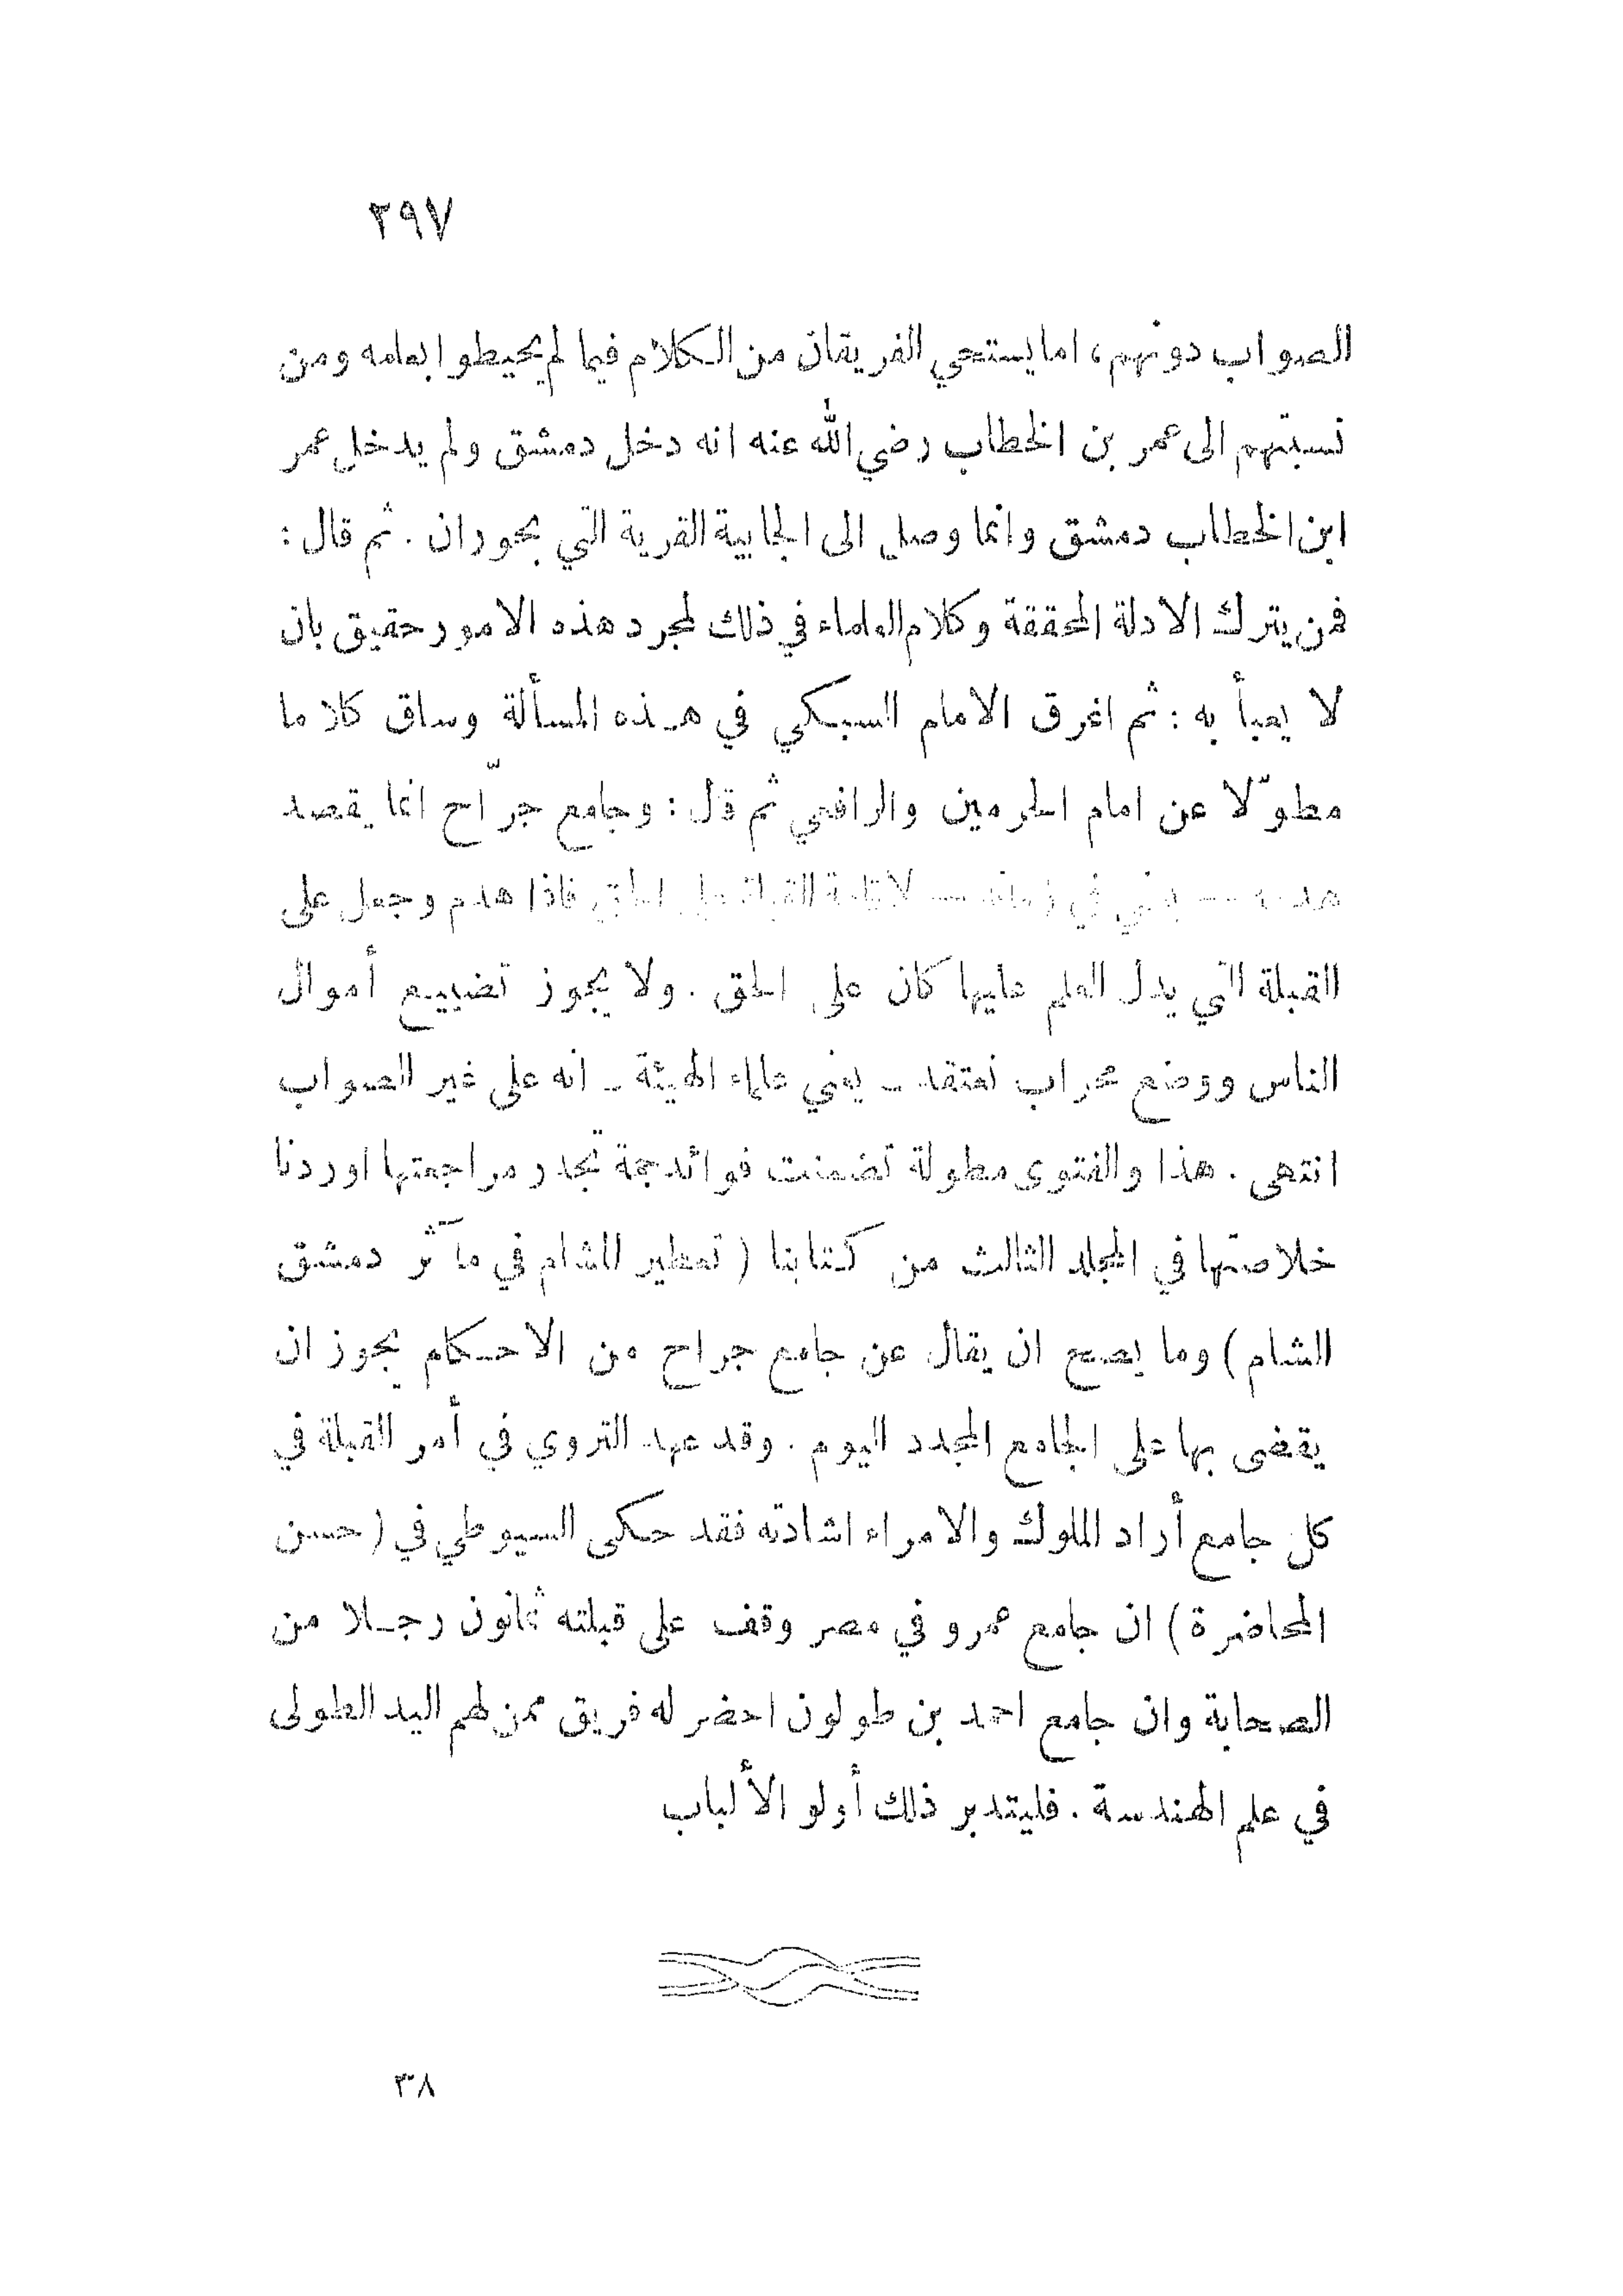 ٢٩٧
الصواب دونهم، اما يستحي الفريقان من الكلام فيما لم يحيطوا بعلمه ومن
نسبتهم الى عمر بن الخطاب رضي الله عنه انه دخل دمشق ولم يدخل عمر
ابن الخطاب دمشق وانما وصل الى الجابية القرية التي بحوران . ثم قال :
فمن يترك الادلة المحققة وكلام العلماء في ذلك لمجرد هذه الامور حقيق بان
لا يعبأ به : ثم اغرق الامام السبكي في هذه المسألة وساق كلاما
مطوّلا عن امام الحرمين والرافعي ثم قال : وجامع جرّاح انما يقصد
هدمه — يعني في زمانه — لاقامة القبلة على الحق فاذا هدم وجعل على
القبلة التي يدل العلم عليها كان على الحق . ولا يجوز تضييع أموال
الناس ووضع محراب نعتقد - يعني علماء الهيئة - انه على غير الصواب
انتهى . هذا والفتوى مطولة تضمنت فوائد جمة تجدر مراجعتها اوردنا
خلاصتها في المجلد الثالث من كتابنا ( تعطير المشام في مآثر دمشق
الشام ) وما يصح ان يقال عن جامع جراح من الاحكام يجوز ان
يقضى بها على الجامع المجدد اليوم . وقد عهد التروي في أمر القبلة في
كل جامع أراد الملوك والامراء اشادته فقد حكى السيوطي في ( حسن
المحاضرة ) ان جامع عمرو في مصر وقف على قبلته ثمانون رجلا من
الصحابة وان جامع احمد بن طولون احضر له فريق ممن لهم اليد الطولى
في علم الهندسة . فليتدبر ذلك أولو الألباب
٣٨